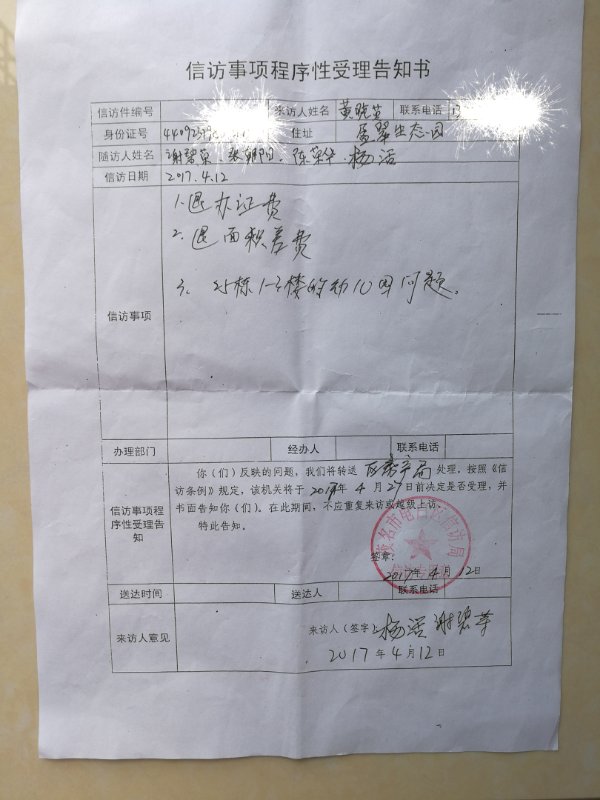 信访事项程序性受理告知书
信访件编号 来访人姓名 黄晓英 联系电话
身份证号 440923 住址 居翠生态园
随访人姓名 谢碧草、张朝阳、陈荣华、杨活
信访日期 2017.4.12
信访事项
1.退办证费
2.退面积差费
3、25栋1-3楼的幼儿园问题。
办理部门 经办人 联系电话
信访事项程序性受理告知
你（们）反映的问题，我们将转送 区房产局 处理，按照《信
访条例》规定，该机关将于 2017年 4 月 27日前决定是否受理，并
书面告知你（们）。在此期间，不应重复来访或越级上访。
特此告知。
茂名市电白区信访局
签章：
2017年 4月 12日
送达时间 送达人 联系电话
来访人意见
来访人（签字）：杨活 谢碧草
2017 年 4 月 12 日